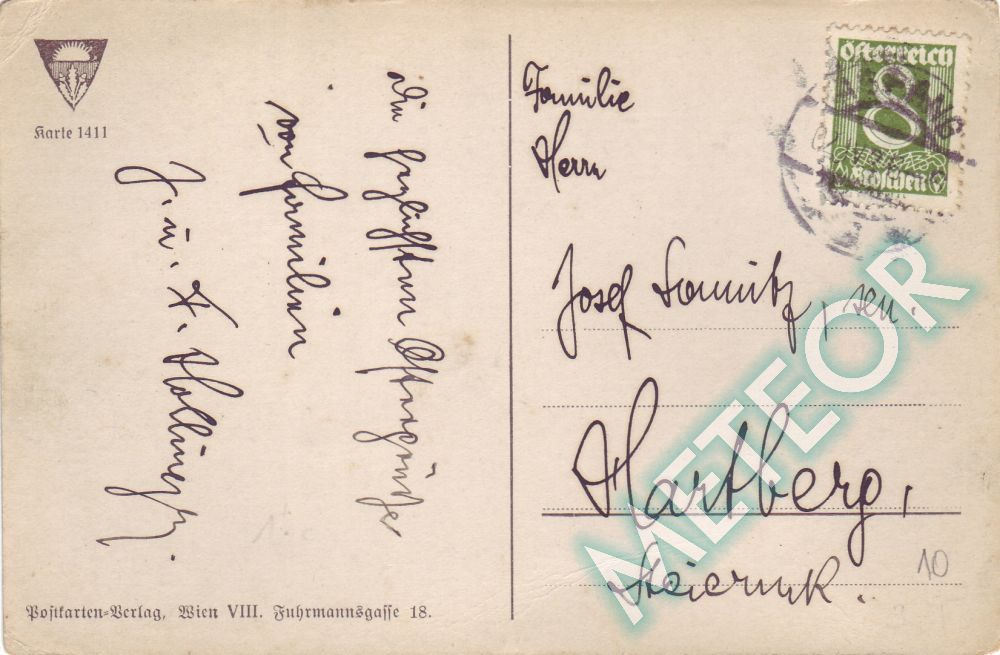 Karte 1411
Die herzlichsten Ostergrüße
von Familien
J. u. F.
Postkarten-Verlag, Wien VIII. Fuhrmannsgasse 18.
Österreich
8
Groschen
Familie
Herrn
Josef sen.
Hartberg,
Steiermk.
10
METEOR